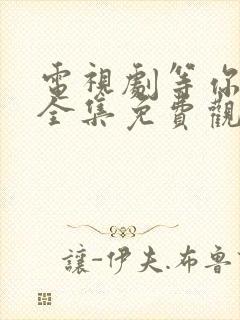 電視劇等你
全集免費觀
讓-伊夫.布魯